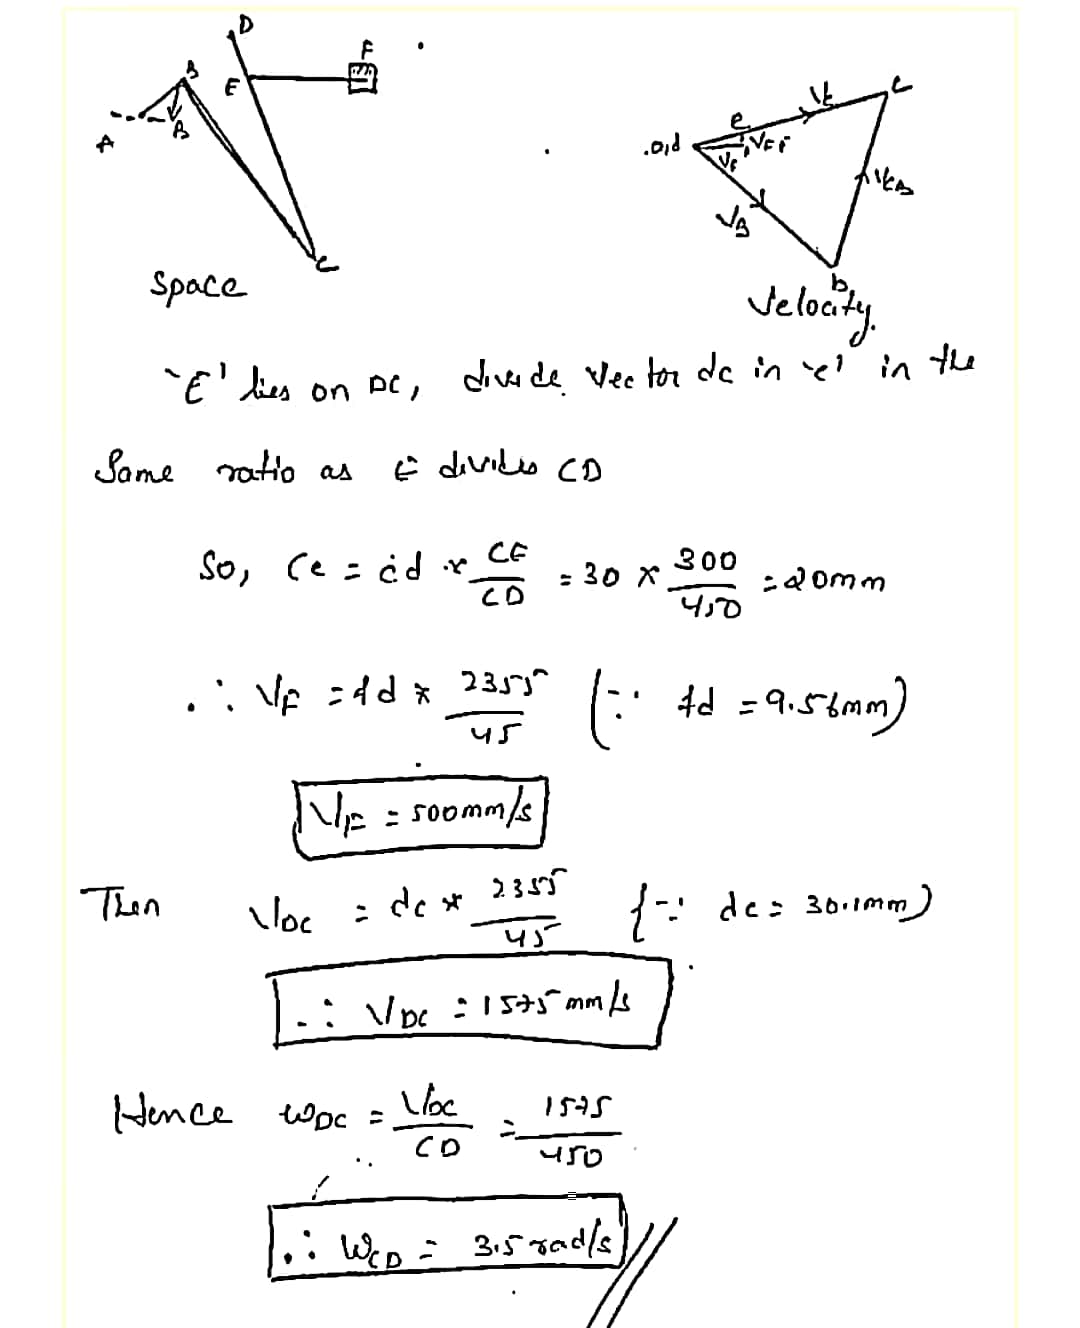 D
F
B
E
A
B
C
Space
c
Vc
e
.o,d
VF
VB
b
Velocity.
'E' lies on DC, divide Vector dc in 'e' in the
Same ratio as E divides CD
So, Ce = cd × CE/CD = 30 × 300/450 = 20mm
∴ VF = fd * 2355/45 (∵ fd = 9.56mm)
VF = 500mm/s
Then VDC = dc * 2355/45 {∵ dc = 30.1mm)
∴ VDC = 1575 mm/s
Hence ωDC = VDC/CD = 1575/450
∴ WCD = 3.5 rad/s